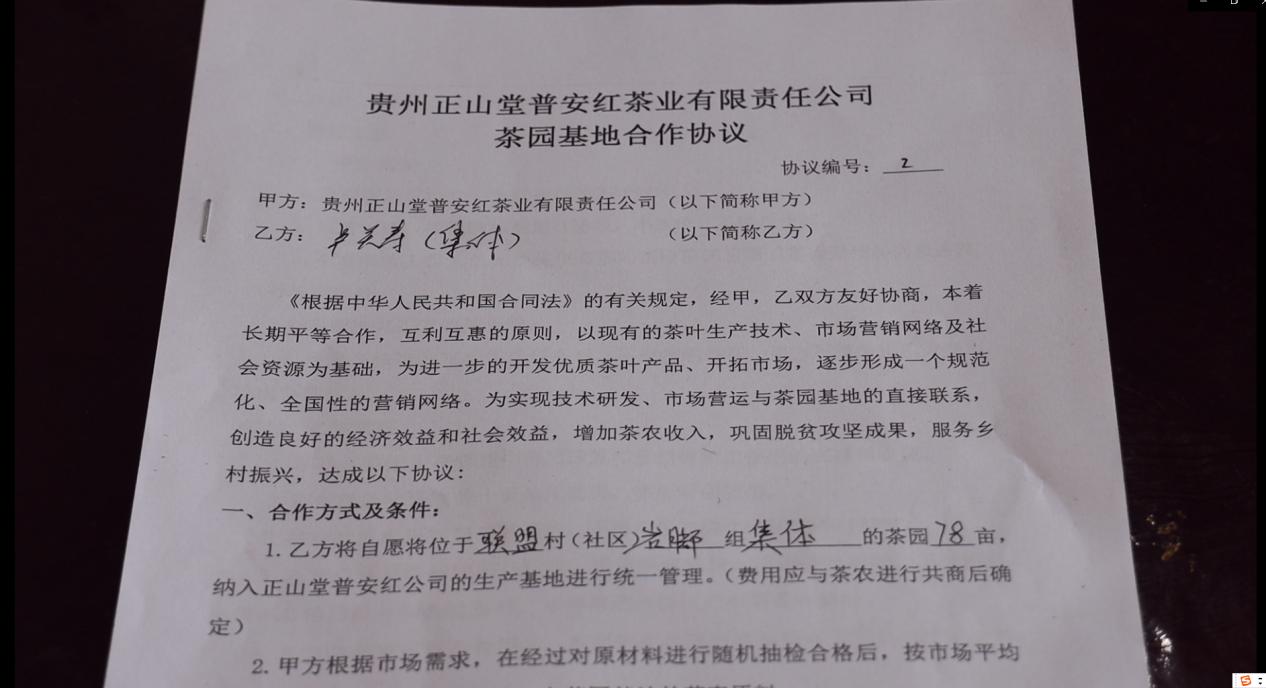 贵州正山堂普安红茶业有限责任公司
茶园基地合作协议
协议编号：2
甲方：贵州正山堂普安红茶业有限责任公司（以下简称甲方）
乙方：（集体）（以下简称乙方）
《根据中华人民共和国合同法》的有关规定，经甲，乙双方友好协商，本着
长期平等合作，互利互惠的原则，以现有的茶叶生产技术、市场营销网络及社
会资源为基础，为进一步的开发优质茶叶产品、开拓市场，逐步形成一个规范
化、全国性的营销网络。为实现技术研发、市场营运与茶园基地的直接联系，
创造良好的经济效益和社会效益，增加茶农收入，巩固脱贫攻坚成果，服务乡
村振兴，达成以下协议：
一、合作方式及条件：
1.乙方将自愿将位于联盟村（社区）岩脚组集体的茶园78亩，
纳入正山堂普安红公司的生产基地进行统一管理。（费用应与茶农进行共商后确
定）
2.甲方根据市场需求，在经过对原材料进行随机抽检合格后，按市场平均